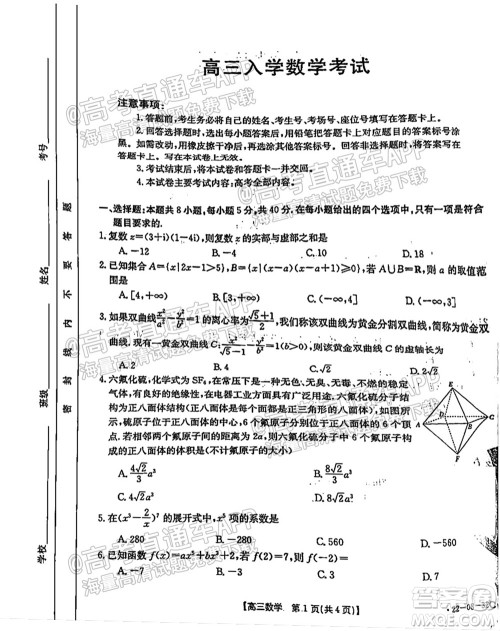 高三入学数学考试
注意事项：
1. 答题前，考生务必将自己的姓名、考生号、考场号、座位号填写在答题卡上。
2. 回答选择题时，选出每小题答案后，用铅笔把答题卡上对应题目的答案标号涂
黑。如需改动，用橡皮擦干净后，再选涂其他答案标号。回答非选择题时，将答案写在
答题卡上。写在本试卷上无效。
3. 考试结束后，将本试卷和答题卡一并交回。
4. 本试卷主要考试内容：高考全部内容。
一、选择题：本题共8小题，每小题5分，共40分。在每小题给出的四个选项中，只有一项是符合
题目要求的。
1. 复数z=(3+i)(1-4i)，则复数z的实部与虚部之和是
A. -12 B. -4 C. 10 D. 18
2. 已知集合A={x|2x-1>5}，B={x|(x-a)(x-a+1)≥0}，若A∪B=R，则a的取值
范围是
3. 如果双曲线x²/a²-y²/b²=1的离心率为(√5+1)/2，我们称该双曲线为黄金分割双曲线，简称为黄金
双曲线。现有一黄金双曲线C：x²/(√5-1)-y²/b²=1(b>0)，则该黄金双曲线C的虚轴长为
A. 2 B. 4 C. √2 D. 2√2
4. 六氟化硫，化学式为SF₆，在常压下是一种无色、无臭、无毒、不燃的稳定
气体，有良好的绝缘性，在电器工业方面具有广泛用途。六氟化硫分子结
构为正八面体结构(正八面体是每个面都是正三角形的八面体)，如图所
示，硫原子位于正八面体的中心，6个氟原子分别位于正八面体的6个顶
点，若相邻两个氟原子间的距离为2a，则六氟化硫分子中6个氟原子构成
的正八面体的体积是(不计氟原子的大小)
A. 4√2/3 a³ B. 8√2/3 a³
C. 4√2a³ D. 8√2a³
E
D
C
A
B
F
5. 在(x³-2/x)⁷的展开式中，x⁵项的系数是
A. 280 B. -280 C. 560 D. -560
D. 7
【高三数学 第1页(共4页)】
学校
班级
姓名
考号
密封线内不要答题
@高考直通车APP
海量高清试题免费下载